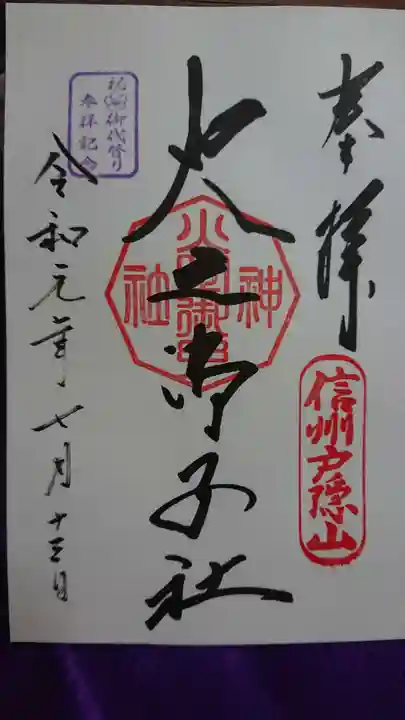 奉拝
信州戸隠山
火之御子社
神
火之御子
社
祝御代替り
参拝記念
令和元年七月十三日